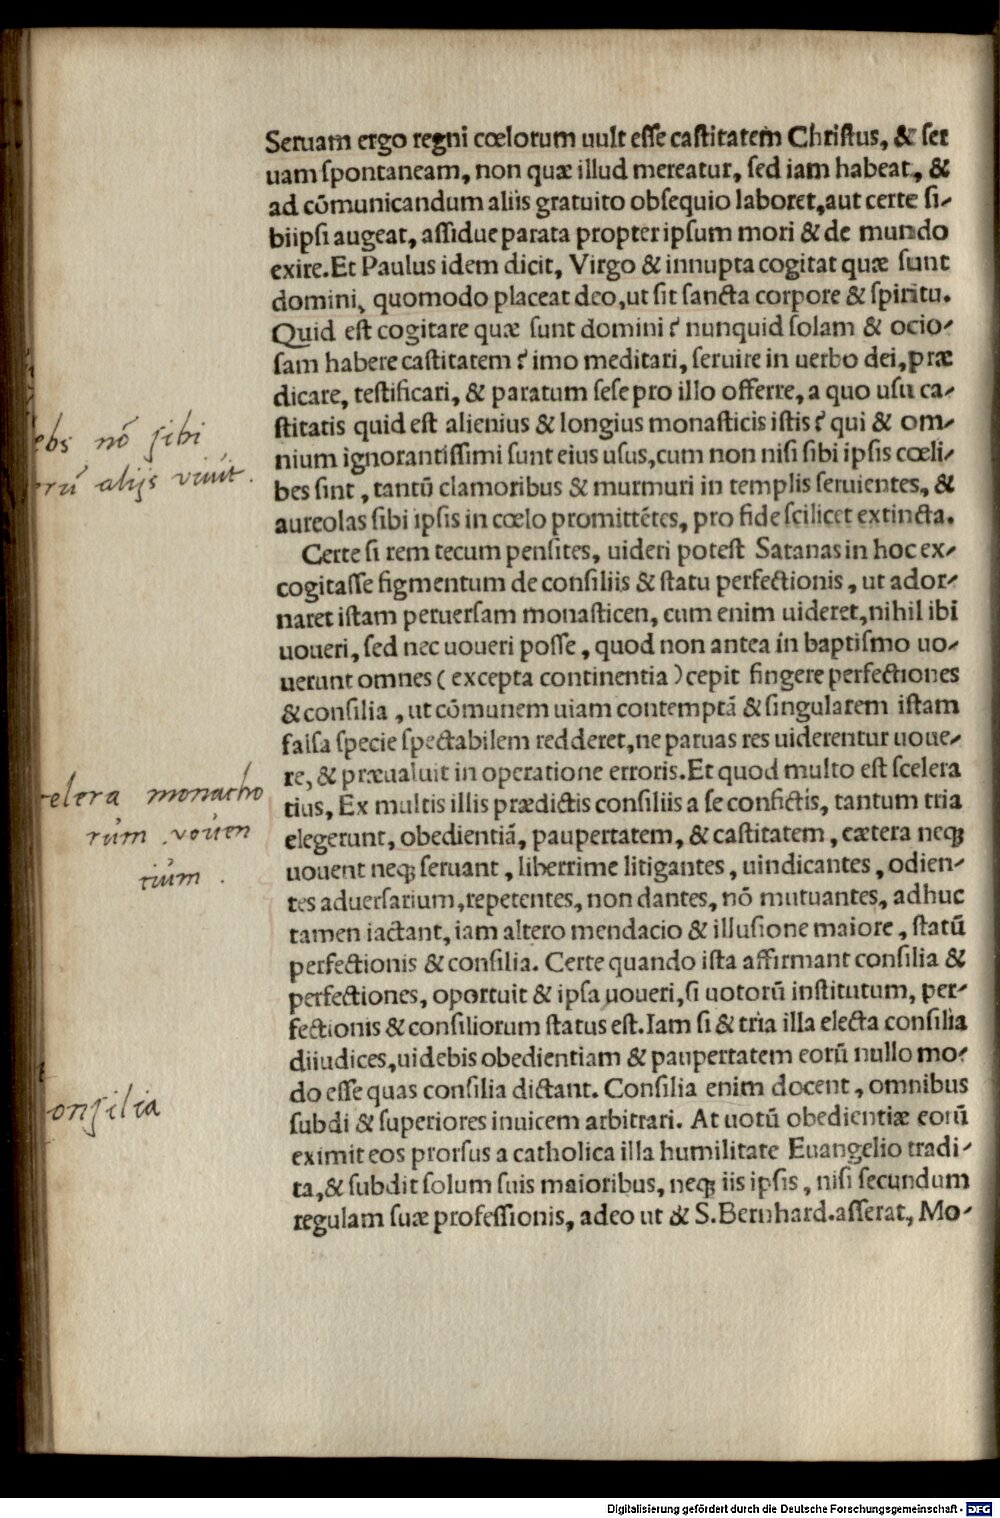 Seruam ergo regni cœlorum uult esse castitatem Christus, & ser
uam spontaneam, non quæ illud mereatur, sed iam habeat, &
ad cōmunicandum aliis gratuito obsequio laboret, aut certe si-
biipsi augeat, assidue parata propter ipsum mori & de mundo
exire. Et Paulus idem dicit, Virgo & innupta cogitat quæ sunt
domini, quomodo placeat deo, ut sit sancta corpore & spiritu.
Quid est cogitare quæ sunt domini? nunquid solam & ocio-
sam habere castitatem? imo meditari, seruire in uerbo dei, præ
dicare, testificari, & paratum sese pro illo offerre, a quo usu ca-
stitatis quid est alienius & longius monasticis istis? qui & om-
nium ignorantissimi sunt eius usus, cum non nisi sibi ipsis cœli-
bes sint, tantū clamoribus & murmuri in templis seruientes, &
aureolas sibi ipsis in cœlo promittētes, pro fide scilicet extincta.
Certe si rem tecum pensites, uideri potest Satanas in hoc ex-
cogitasse figmentum de consiliis & statu perfectionis, ut ador-
naret istam peruersam monasticen, cum enim uideret, nihil ibi
uoueri, sed nec uoueri posse, quod non antea in baptismo uo-
uerunt omnes (excepta continentia) cepit fingere perfectiones
& consilia, ut cōmunem uiam contemptā & singularem istam
falsa specie spectabilem redderet, ne paruas res uiderentur uoue-
re, & præualuit in operatione erroris. Et quod multo est scelera
tius, Ex multis illis prædictis consiliis a se confictis, tantum tria
elegerunt, obedientiā, paupertatem, & castitatem, cætera neqꝫ
uouent neqꝫ seruant, liberrime litigantes, uindicantes, odien-
tes aduersarium, repetentes, non dantes, nō mutuantes, adhuc
tamen iactant, iam altero mendacio & illusione maiore, statū
perfectionis & consilia. Certe quando ista affirmant consilia &
perfectiones, oportuit & ipsa uoueri, si uotorū institutum, per-
fectionis & consiliorum status est. Iam si & tria illa electa consilia
diiudices, uidebis obedientiam & paupertatem eorū nullo mo-
do esse quas consilia dictant. Consilia enim docent, omnibus
subdi & superiores inuicem arbitrari. At uotū obedientiæ eorū
eximit eos prorsus a catholica illa humilitate Euangelio tradi-
ta, & subdit solum suis maioribus, neqꝫ iis ipsis, nisi secundum
regulam suæ professionis, adeo ut & S. Bernhard. asserat, Mo-
ebs nō sibi
erū alijs viuūt.
celera monacho
rum voven
tium.
onsilia
Digitalisierung gefördert durch die Deutsche Forschungsgemeinschaft - DFG